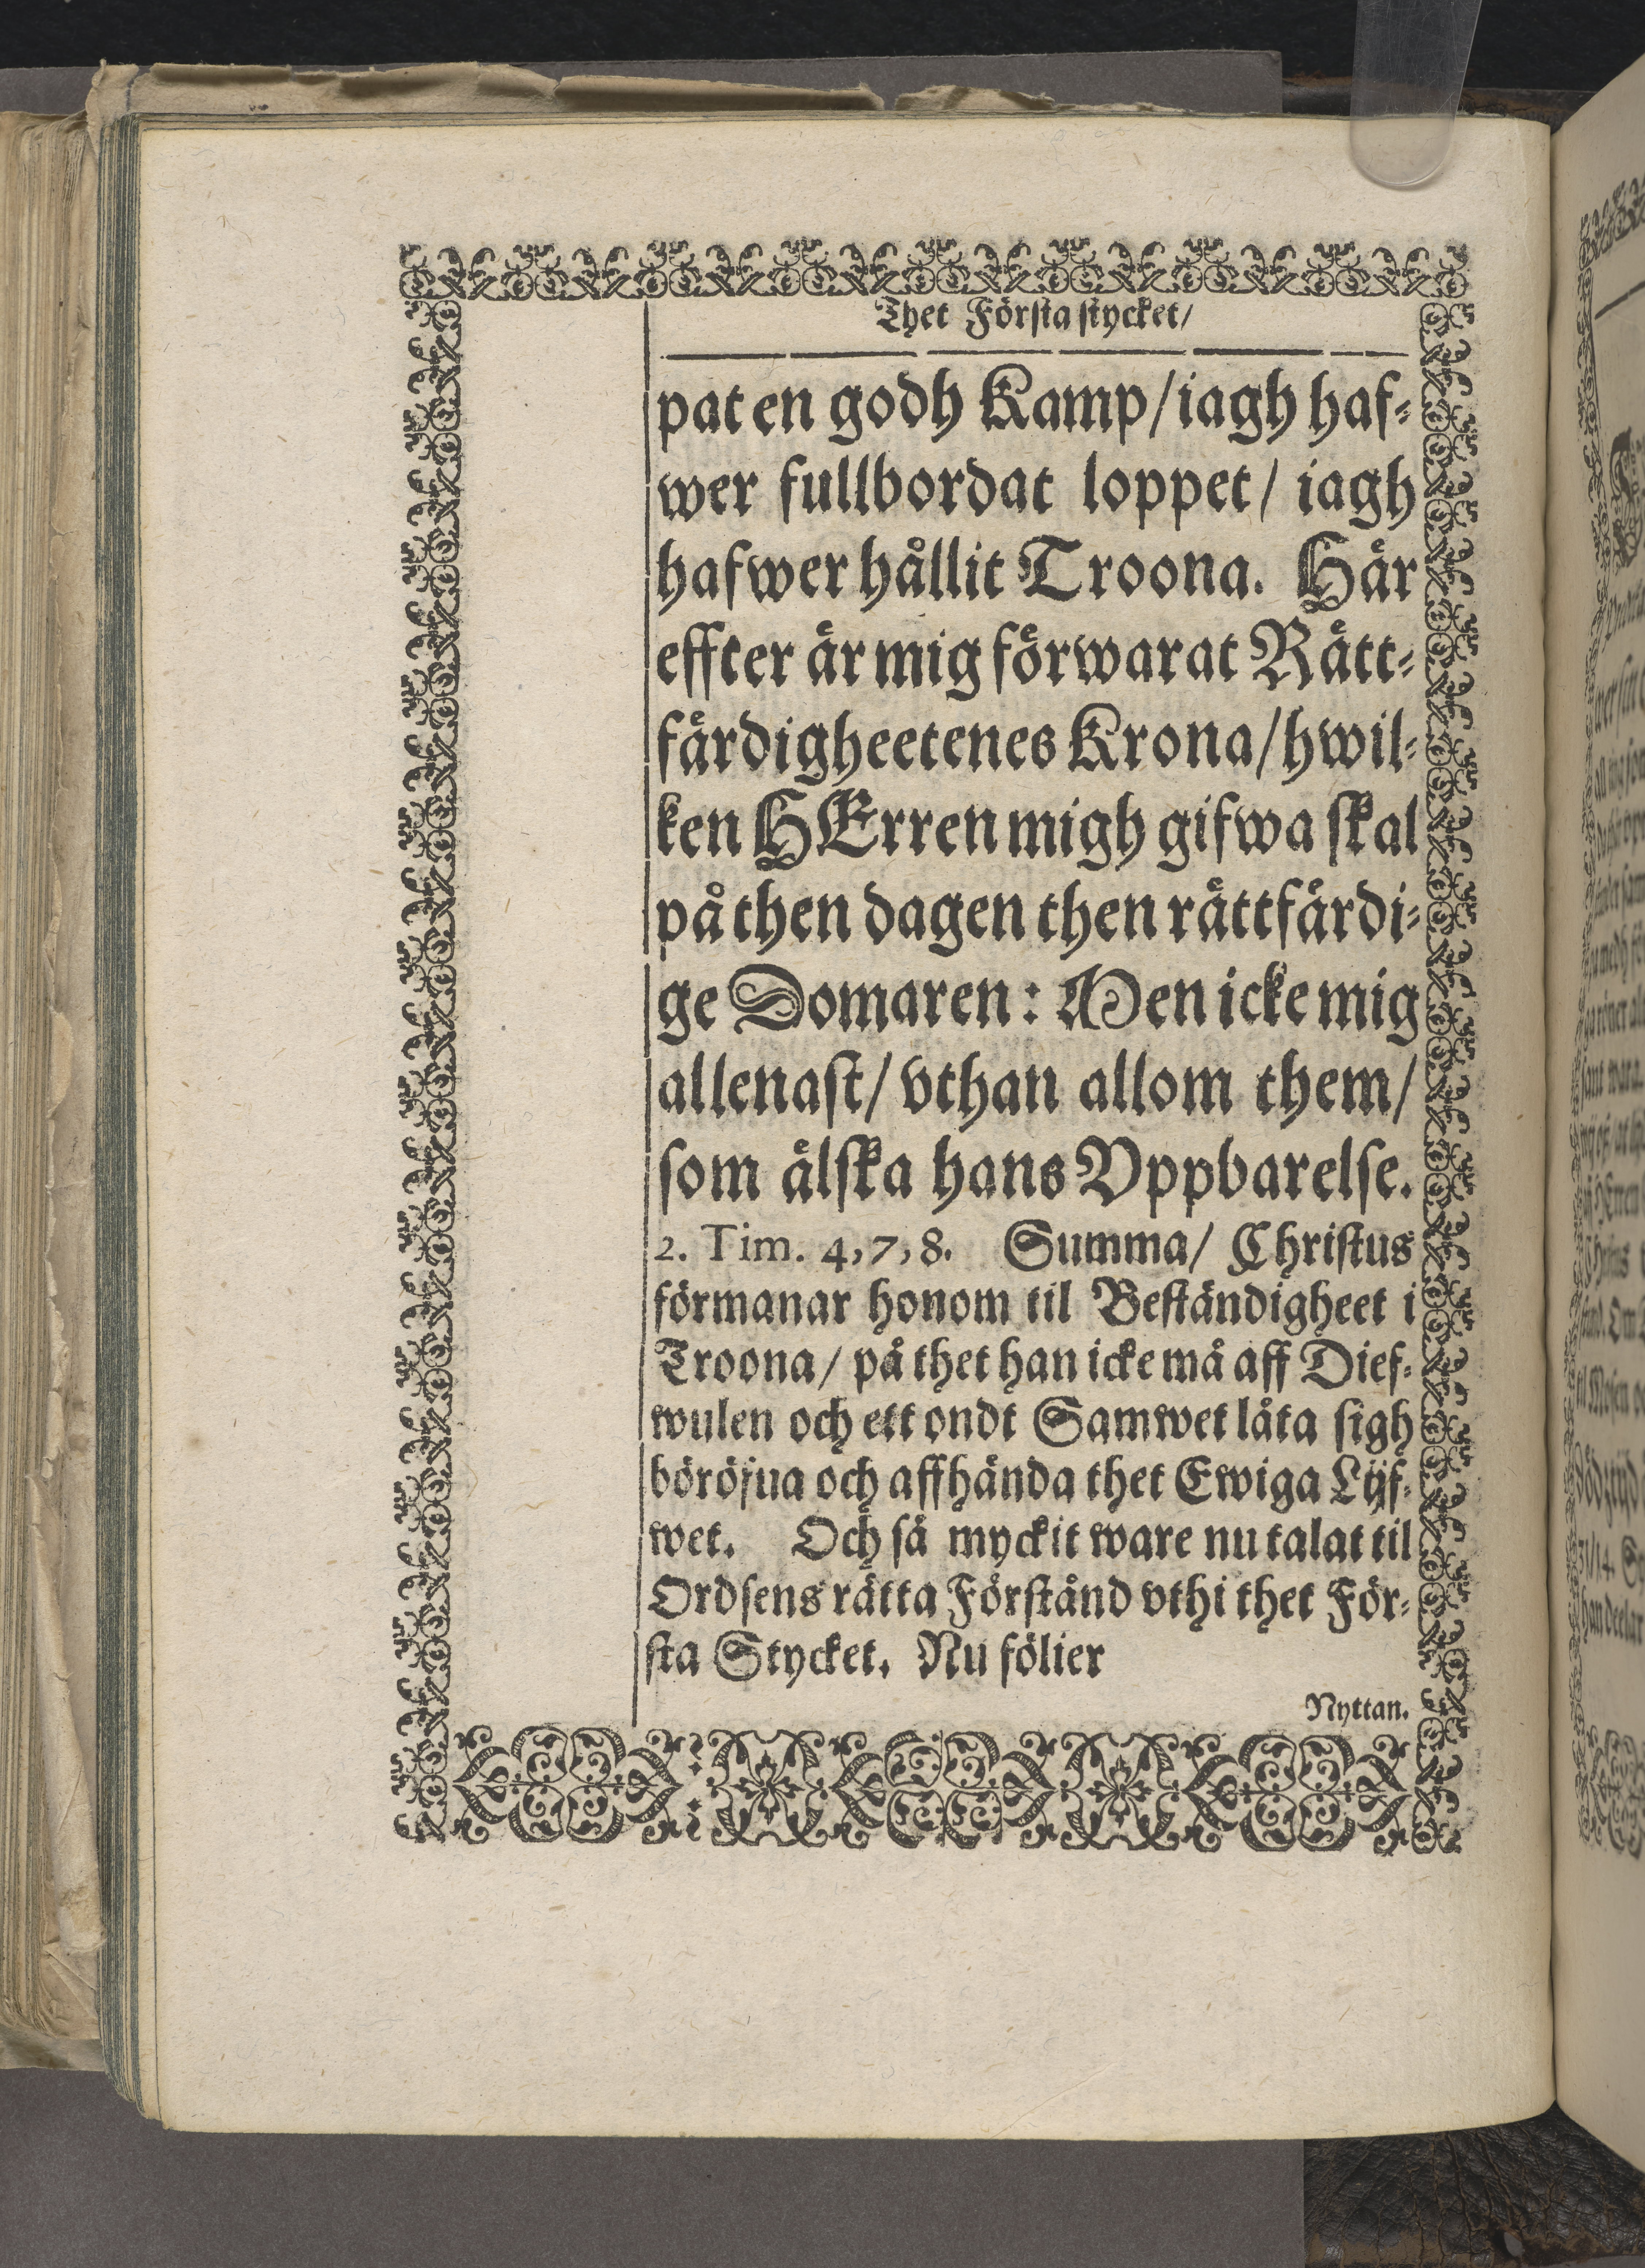 Thet Första stycket/
pat en godh Kamp/ iagh haf-
wer fullbordat loppet/ iagh
hafwer hållit Troona. Här
effter är mig förwarat Rätt-
färdigheetenes Krona/ hwil-
ken HErren migh gifwa skal
på then dagen then rättfärdi-
ge Domaren: Men icke mig
allenast/ vthan allom them/
som älska hans Vppbarelse.
2. Tim. 4, 7, 8. Summa/ Christus
förmanar honom til Beständigheet i
Troona/ på thet han icke må aff Dief-
wulen och ett ondt Samwet låta sigh
böröfua och affhända thet Ewiga Lijf-
wet. Och så myckit ware nu talat til
Ordsens rätta Förstånd vthi thet För-
sta Stycket. Nu fölier
Nyttan.